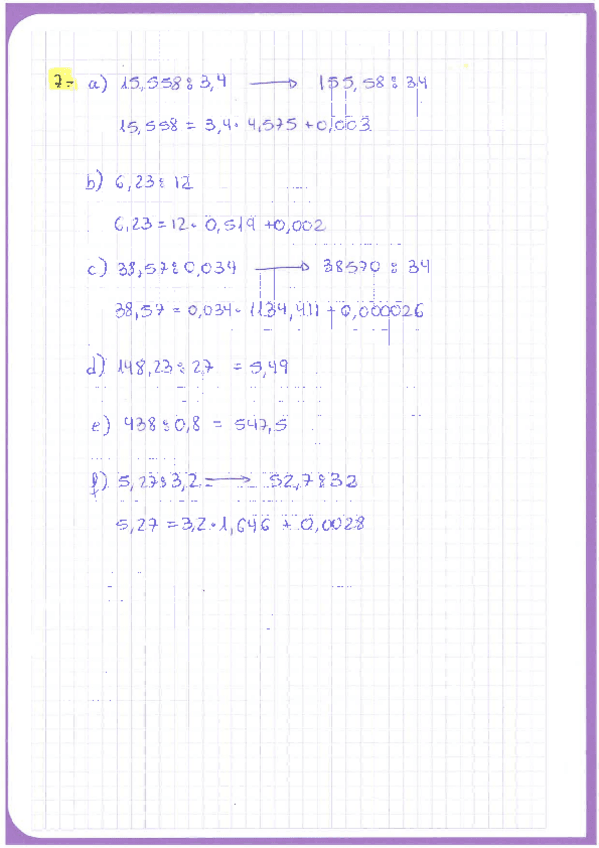 7- a) 15,558 : 3,4 → 155,58 : 34
15,558 = 3,4 · 4,575 + 0,003
b) 6,23 : 12
6,23 = 12 · 0,519 + 0,002
c) 38,57 : 0,034 → 38570 : 34
38,57 = 0,034 · 1134,411 + 0,000026
d) 148,23 : 27 = 5,49
e) 438 : 0,8 = 547,5
f) 5,27 : 3,2 = → 52,7 : 32
5,27 = 3,2 · 1,646 + 0,0028